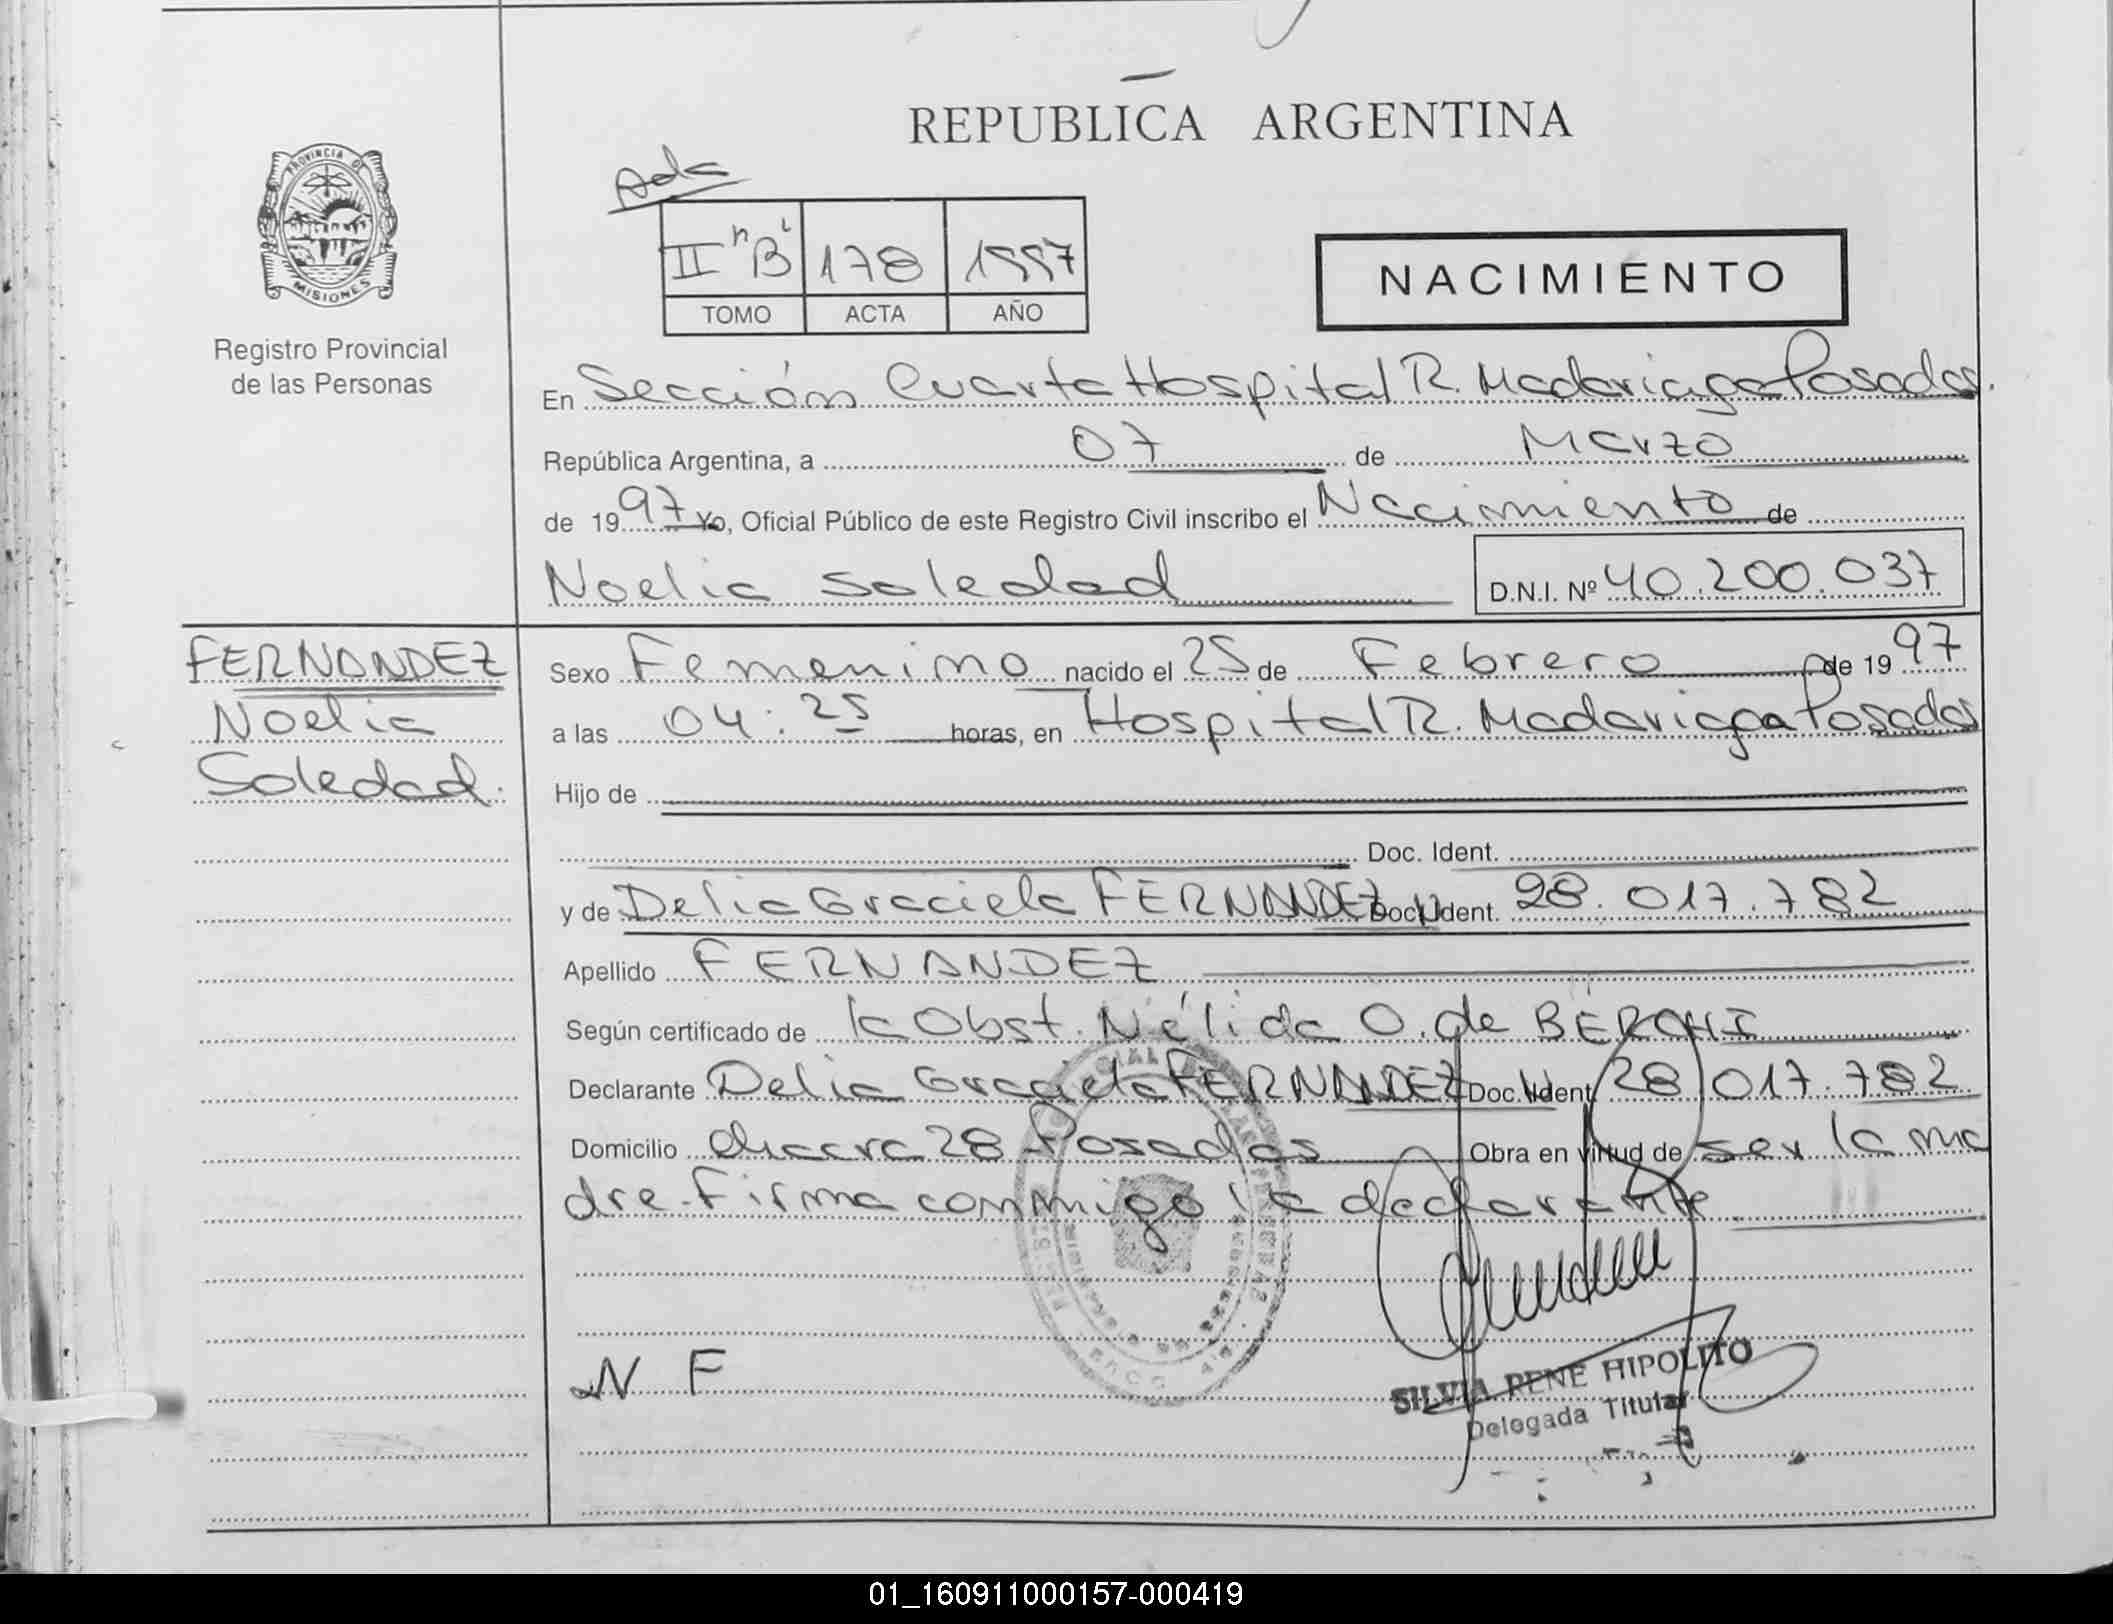 REPUBLICA ARGENTINA
PROVINCIA DE
MISIONES
Registro Provincial
de las Personas
II "B" 178 1997
TOMO ACTA AÑO
NACIMIENTO
En Sección Cuarta Hospital R. Madariaga Posadas.
República Argentina, a 07 de Marzo
de 1997 Yo, Oficial Público de este Registro Civil inscribo el Nacimiento de
Noelia Soledad D.N.I. Nº 40.200.037
FERNANDEZ
Noelia
Soledad.
Sexo Femenino nacido el 25 de Febrero de 1997
a las 04:25 horas, en Hospital R. Madariaga Posadas
Hijo de
Doc. Ident.
y de Delia Graciela FERNANDEZ Doc. Ident. 28.017.782
Apellido FERNANDEZ
Según certificado de la Obst. Nélida O. de
Declarante Delia Graciela FERNANDEZ Doc. Ident. 28.017.782
Domicilio Chacra 28 Posadas Obra en virtud de ser la ma
dre. Firma conmigo la declarante
N F
SILVIA RENE HIPOLITO
Delegada Titular
01_160911000157-000419